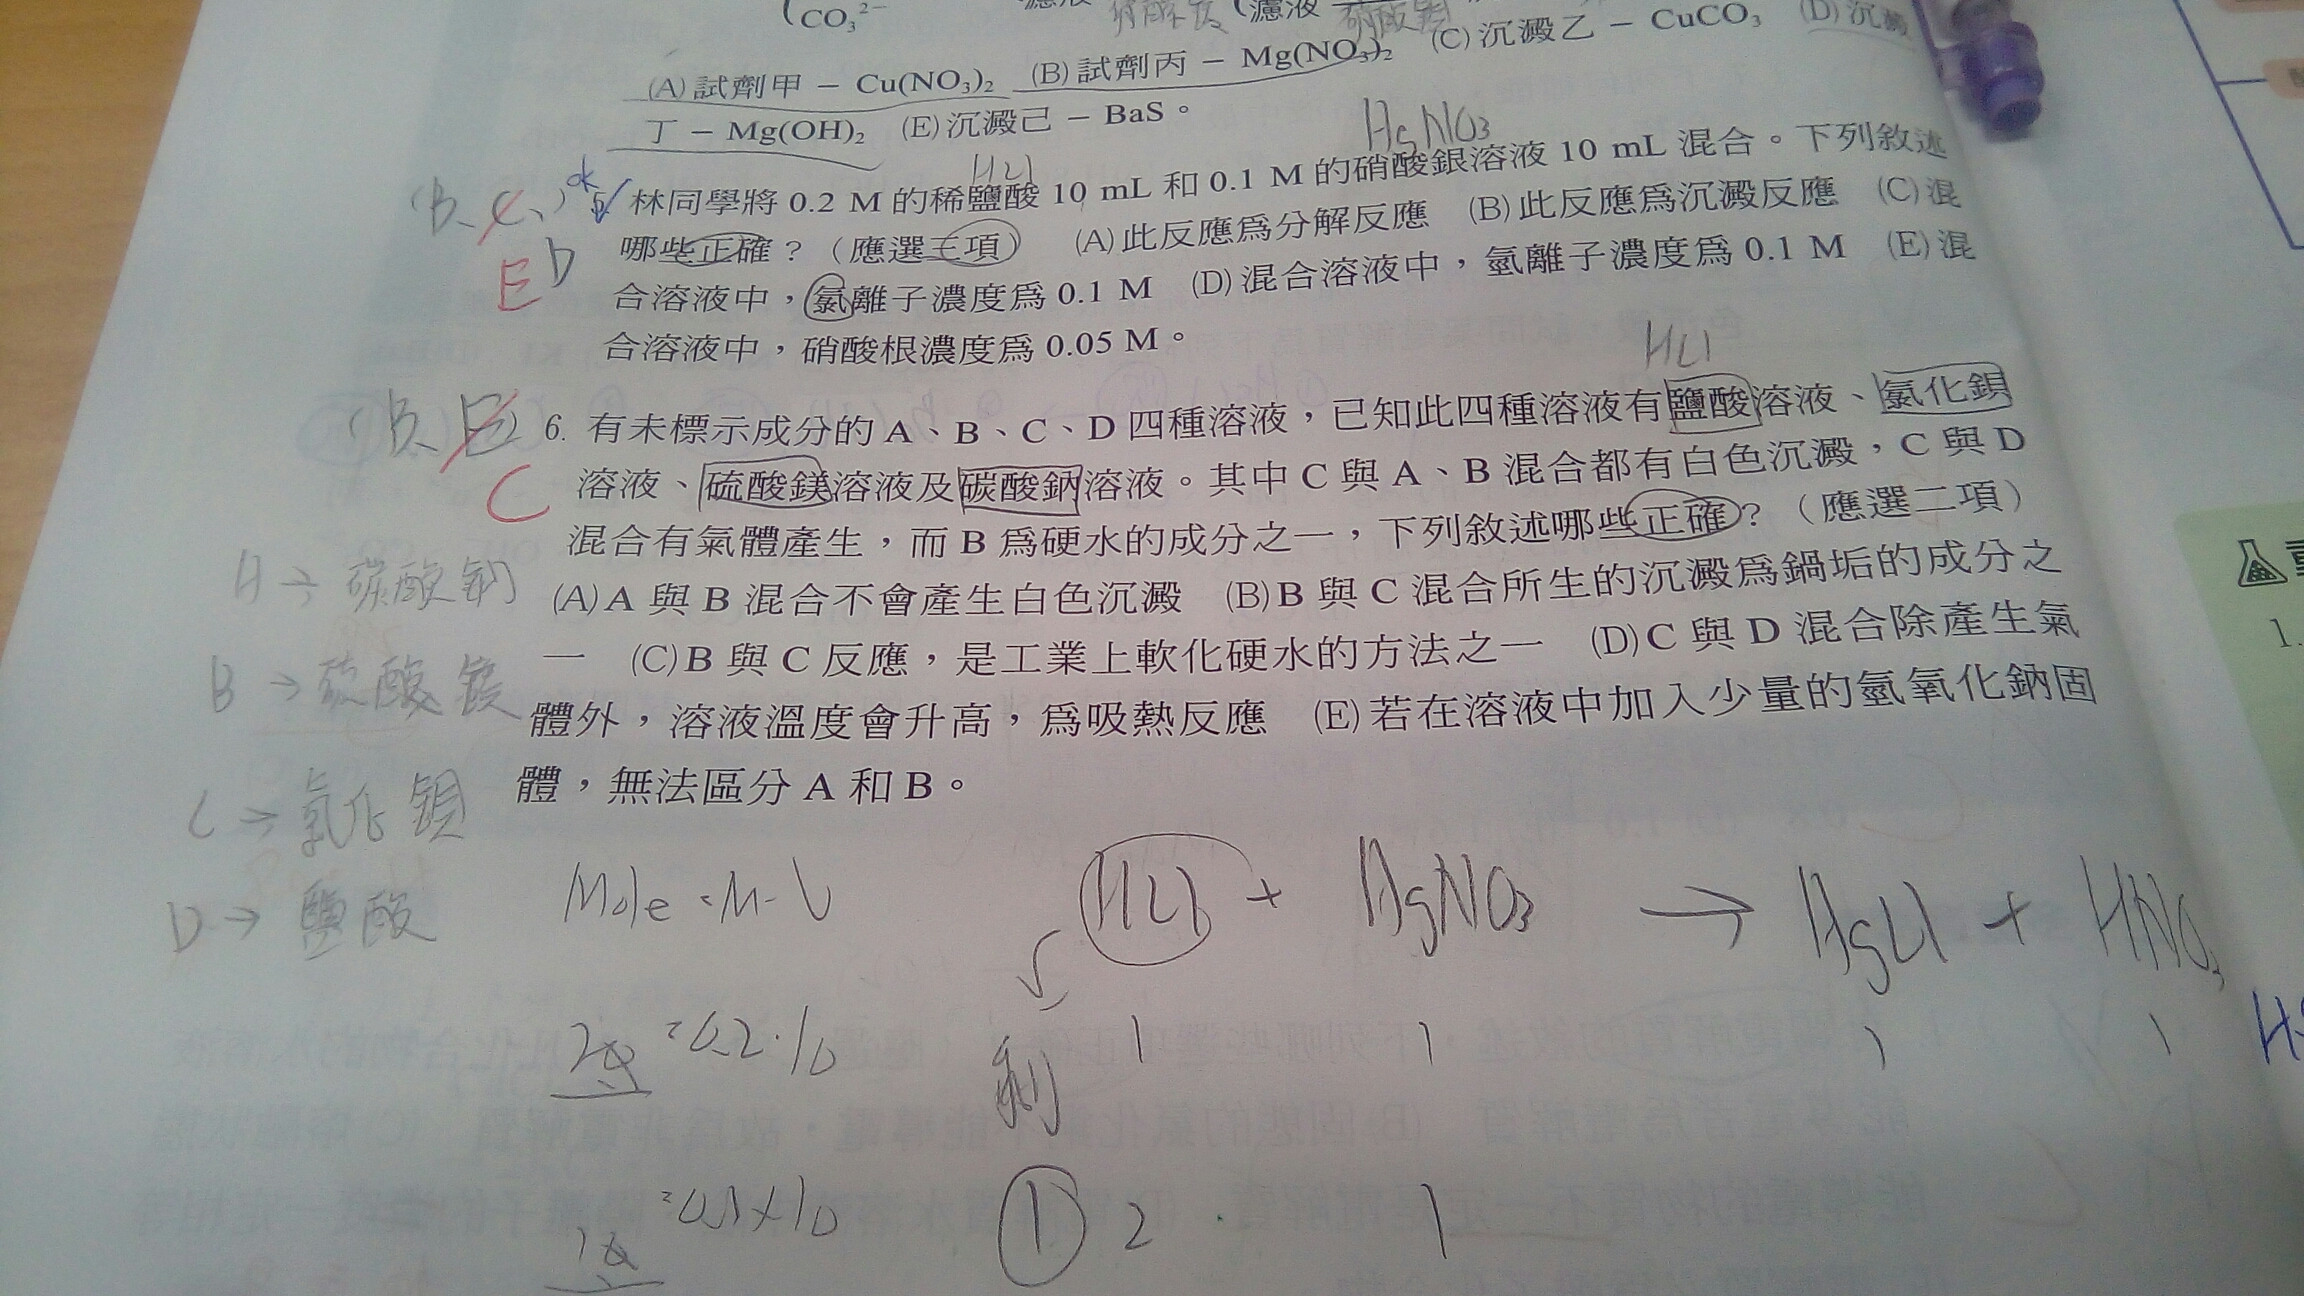 CO₃²⁻ 濾液 硝酸鎂 (濾液 硝酸銅
(A)試劑甲－Cu(NO₃)₂ (B)試劑丙－Mg(NO₃)₂ (C)沉澱乙－CuCO₃ (D)沉澱
丁－Mg(OH)₂ (E)沉澱己－BaS。
HCl AgNO₃
(B、C、) ok 5. 林同學將 0.2 M 的稀鹽酸 10 mL 和 0.1 M 的硝酸銀溶液 10 mL 混合。下列敘述
E D 哪些正確？（應選三項） (A)此反應為分解反應 (B)此反應為沉澱反應 (C)混
合溶液中，氯離子濃度為 0.1 M (D)混合溶液中，氫離子濃度為 0.1 M (E)混
合溶液中，硝酸根濃度為 0.05 M。
HCl
(B、E) 6. 有未標示成分的 A、B、C、D 四種溶液，已知此四種溶液有鹽酸溶液、氯化鋇
C 溶液、硫酸鎂溶液及碳酸鈉溶液。其中 C 與 A、B 混合都有白色沉澱，C 與 D
混合有氣體產生，而 B 為硬水的成分之一，下列敘述哪些正確？（應選二項）
(A)A 與 B 混合不會產生白色沉澱 (B)B 與 C 混合所生的沉澱為鍋垢的成分之
一 (C)B 與 C 反應，是工業上軟化硬水的方法之一 (D)C 與 D 混合除產生氣
體外，溶液溫度會升高，為吸熱反應 (E)若在溶液中加入少量的氫氧化鈉固
體，無法區分 A 和 B。
A → 碳酸鈉
B → 硫酸鎂
C → 氯化鋇
D → 鹽酸
Mole = M·V HCl + AgNO₃ → AgCl + HNO₃
= 0.2·10 剩 1 1 1 1
= 0.1×10 1 2 1